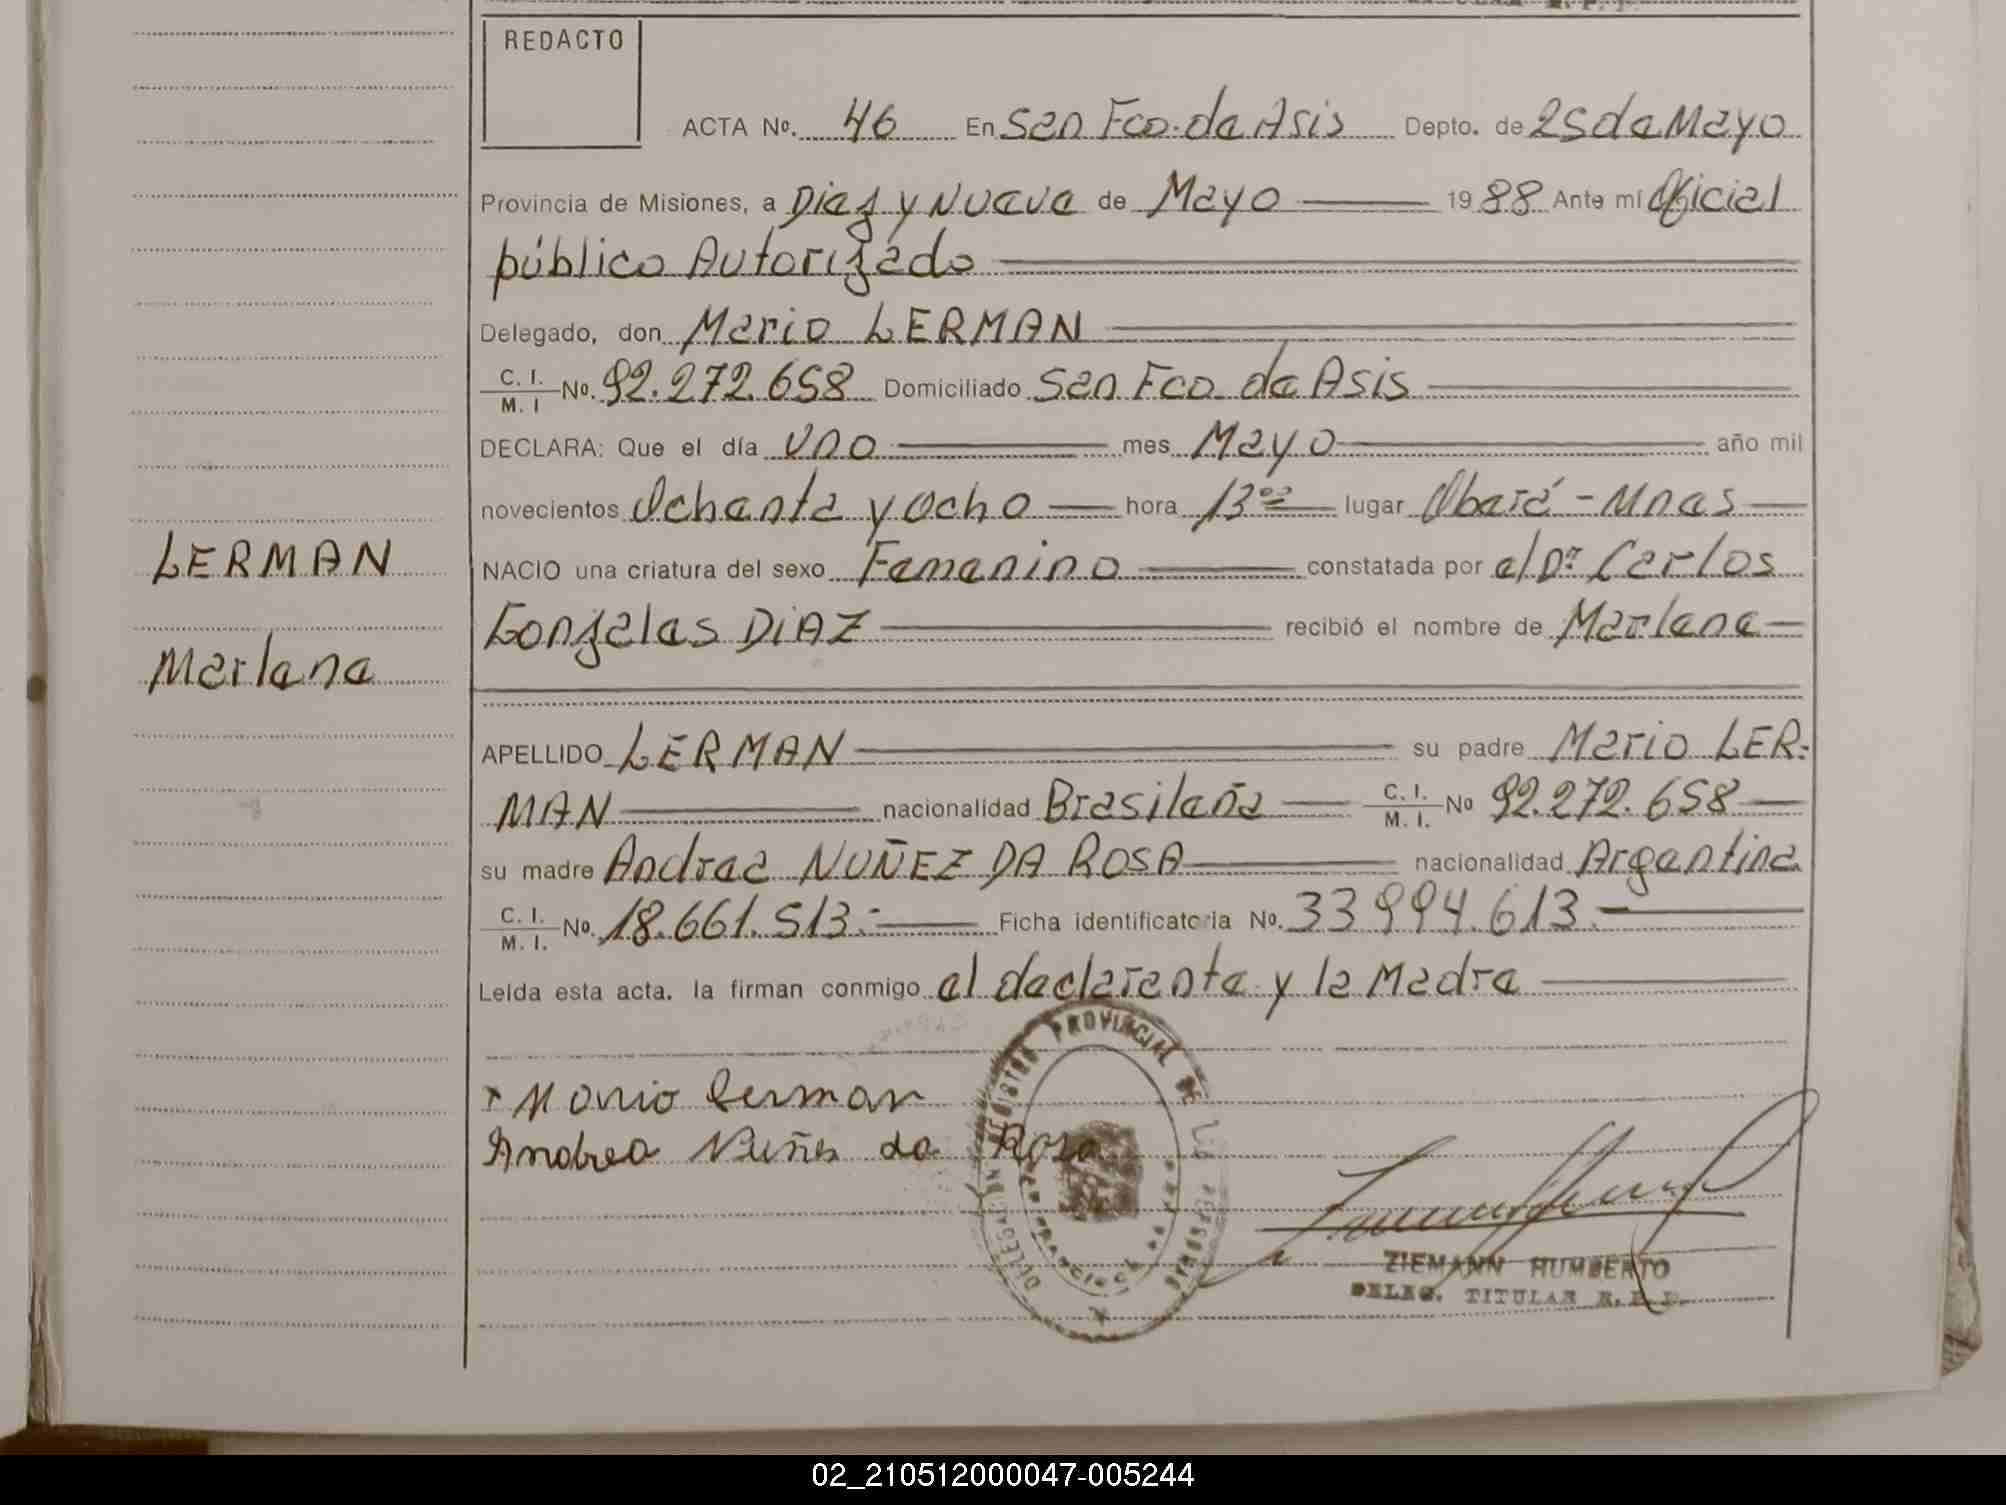 REDACTO
ACTA No. 46 En San Fco. de Asis Depto. de 25 de Mayo
Provincia de Misiones, a Diez y Nueve de Mayo 1988 Ante mi Oficial
público Autorizado
Delegado, don Mario LERMAN
C. I. / M. I No. 92.272.658 Domiciliado San Fco. de Asis
DECLARA: Que el día uno mes Mayo año mil
novecientos Ochenta y ocho hora 13 oo lugar Oberá - Mnes
NACIO una criatura del sexo Femenino constatada por el Dr Carlos
Gonzales DIAZ recibió el nombre de Marlene
LERMAN
Marlene
APELLIDO LERMAN su padre Mario LER-
MAN nacionalidad Brasileña C. I. / M. I. No 92.272.658
su madre Andrea NUÑEZ DA ROSA nacionalidad Argentina
C. I. / M. I. No. 18.661.513.- Ficha identificatoria No. 33994.613.-
Leída esta acta. la firman conmigo el declarante y la Madre
x Mario Lerman
Andrea Nuñes da Rosa
DELEGACION REGISTRO PROVINCIAL DE LAS PERSONAS
ZIEMANN HUMBERTO
DELEG. TITULAR R. P. P.
02_210512000047-005244